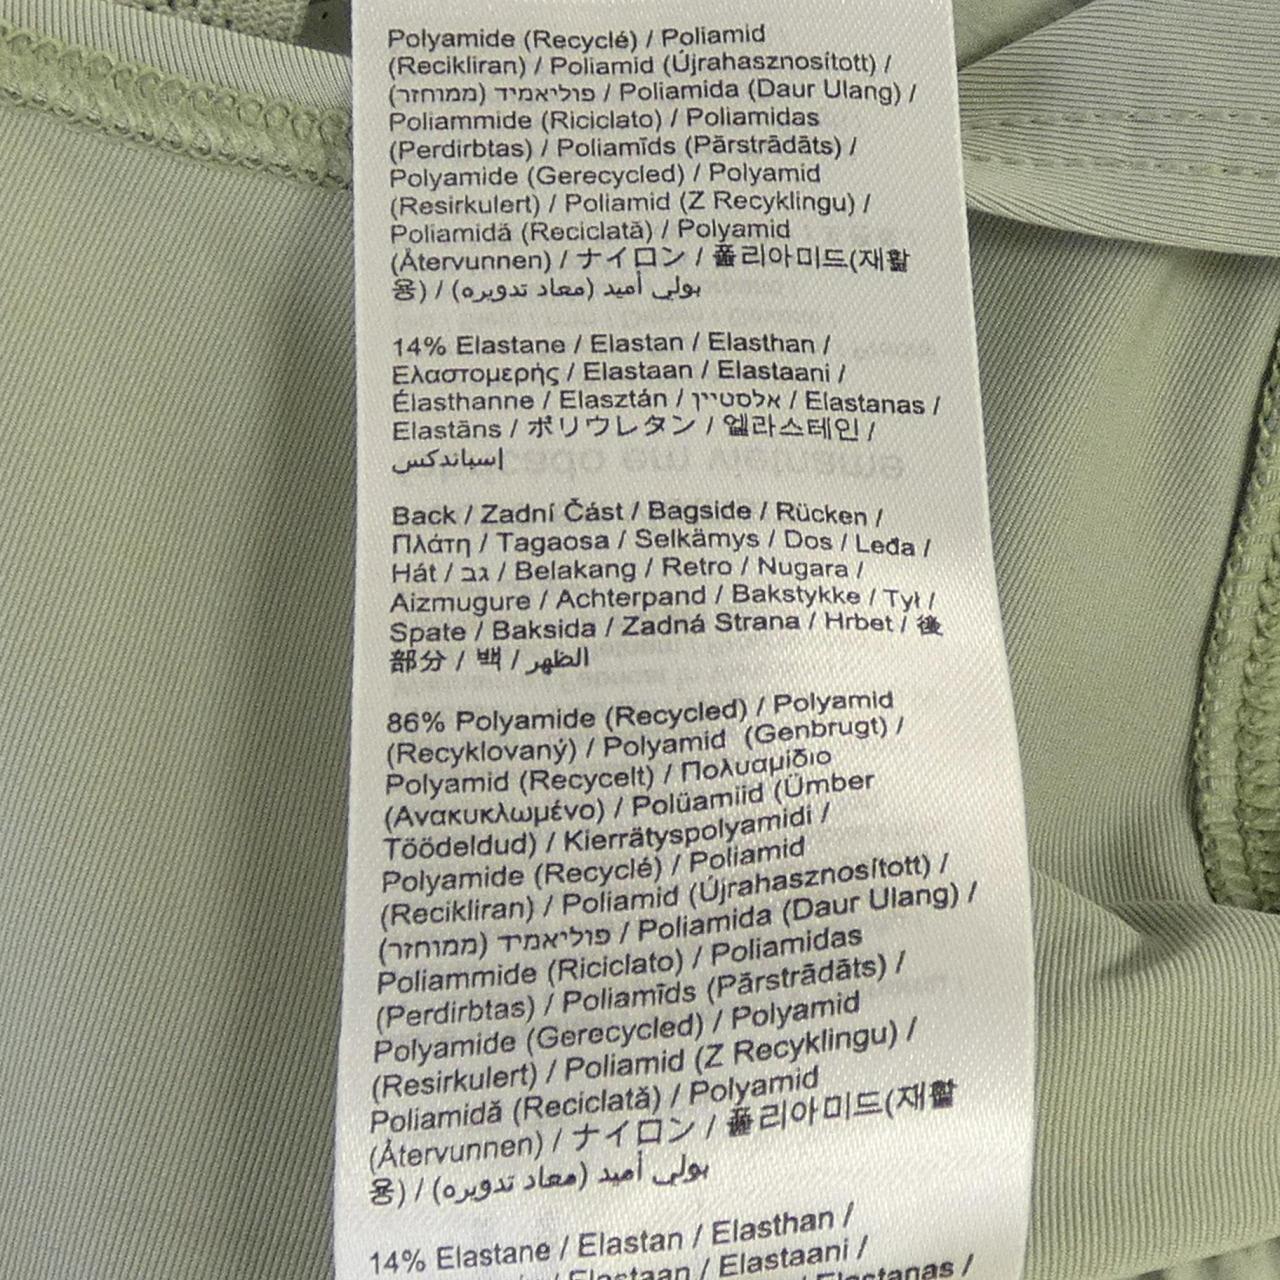 Polyamide (Recyclé) / Poliamid
(Recikliran) / Poliamid (Újrahasznosított) /
פוליאמיד (ממוחזר) / Poliamida (Daur Ulang) /
Poliammide (Riciclato) / Poliamidas
(Perdirbtas) / Poliamīds (Pārstrādāts) /
Polyamide (Gerecycled) / Polyamid
(Resirkulert) / Poliamid (Z Recyklingu) /
Poliamidă (Reciclată) / Polyamid
(Återvunnen) / ナイロン / 폴리아미드(재활
용) / بولي أميد (معاد تدويره)
14% Elastane / Elastan / Elasthan /
Ελαστομερής / Elastaan / Elastaani /
Élasthanne / Elasztán / אלסטיין / Elastanas /
Elastāns / ポリウレタン / 엘라스테인 /
إسباندكس
Back / Zadní Část / Bagside / Rücken /
Πλάτη / Tagaosa / Selkämys / Dos / Leđa /
Hát / גב / Belakang / Retro / Nugara /
Aizmugure / Achterpand / Bakstykke / Tył /
Spate / Baksida / Zadná Strana / Hrbet / 後
部分 / 백 / الظهر
86% Polyamide (Recycled) / Polyamid
(Recyklovaný) / Polyamid (Genbrugt) /
Polyamid (Recycelt) / Πολυαμίδιο
(Ανακυκλωμένο) / Polüamiid (Ümber
Töödeldud) / Kierrätyspolyamidi /
Polyamide (Recyclé) / Poliamid
(Recikliran) / Poliamid (Újrahasznosított) /
פוליאמיד (ממוחזר) / Poliamida (Daur Ulang) /
Poliammide (Riciclato) / Poliamidas
(Perdirbtas) / Poliamīds (Pārstrādāts) /
Polyamide (Gerecycled) / Polyamid
(Resirkulert) / Poliamid (Z Recyklingu) /
Poliamidă (Reciclată) / Polyamid
(Återvunnen) / ナイロン / 폴리아미드(재활
용) / بولي أميد (معاد تدويره)
14% Elastane / Elastan / Elasthan /
Elastaan / Elastaani /
Elastanas /